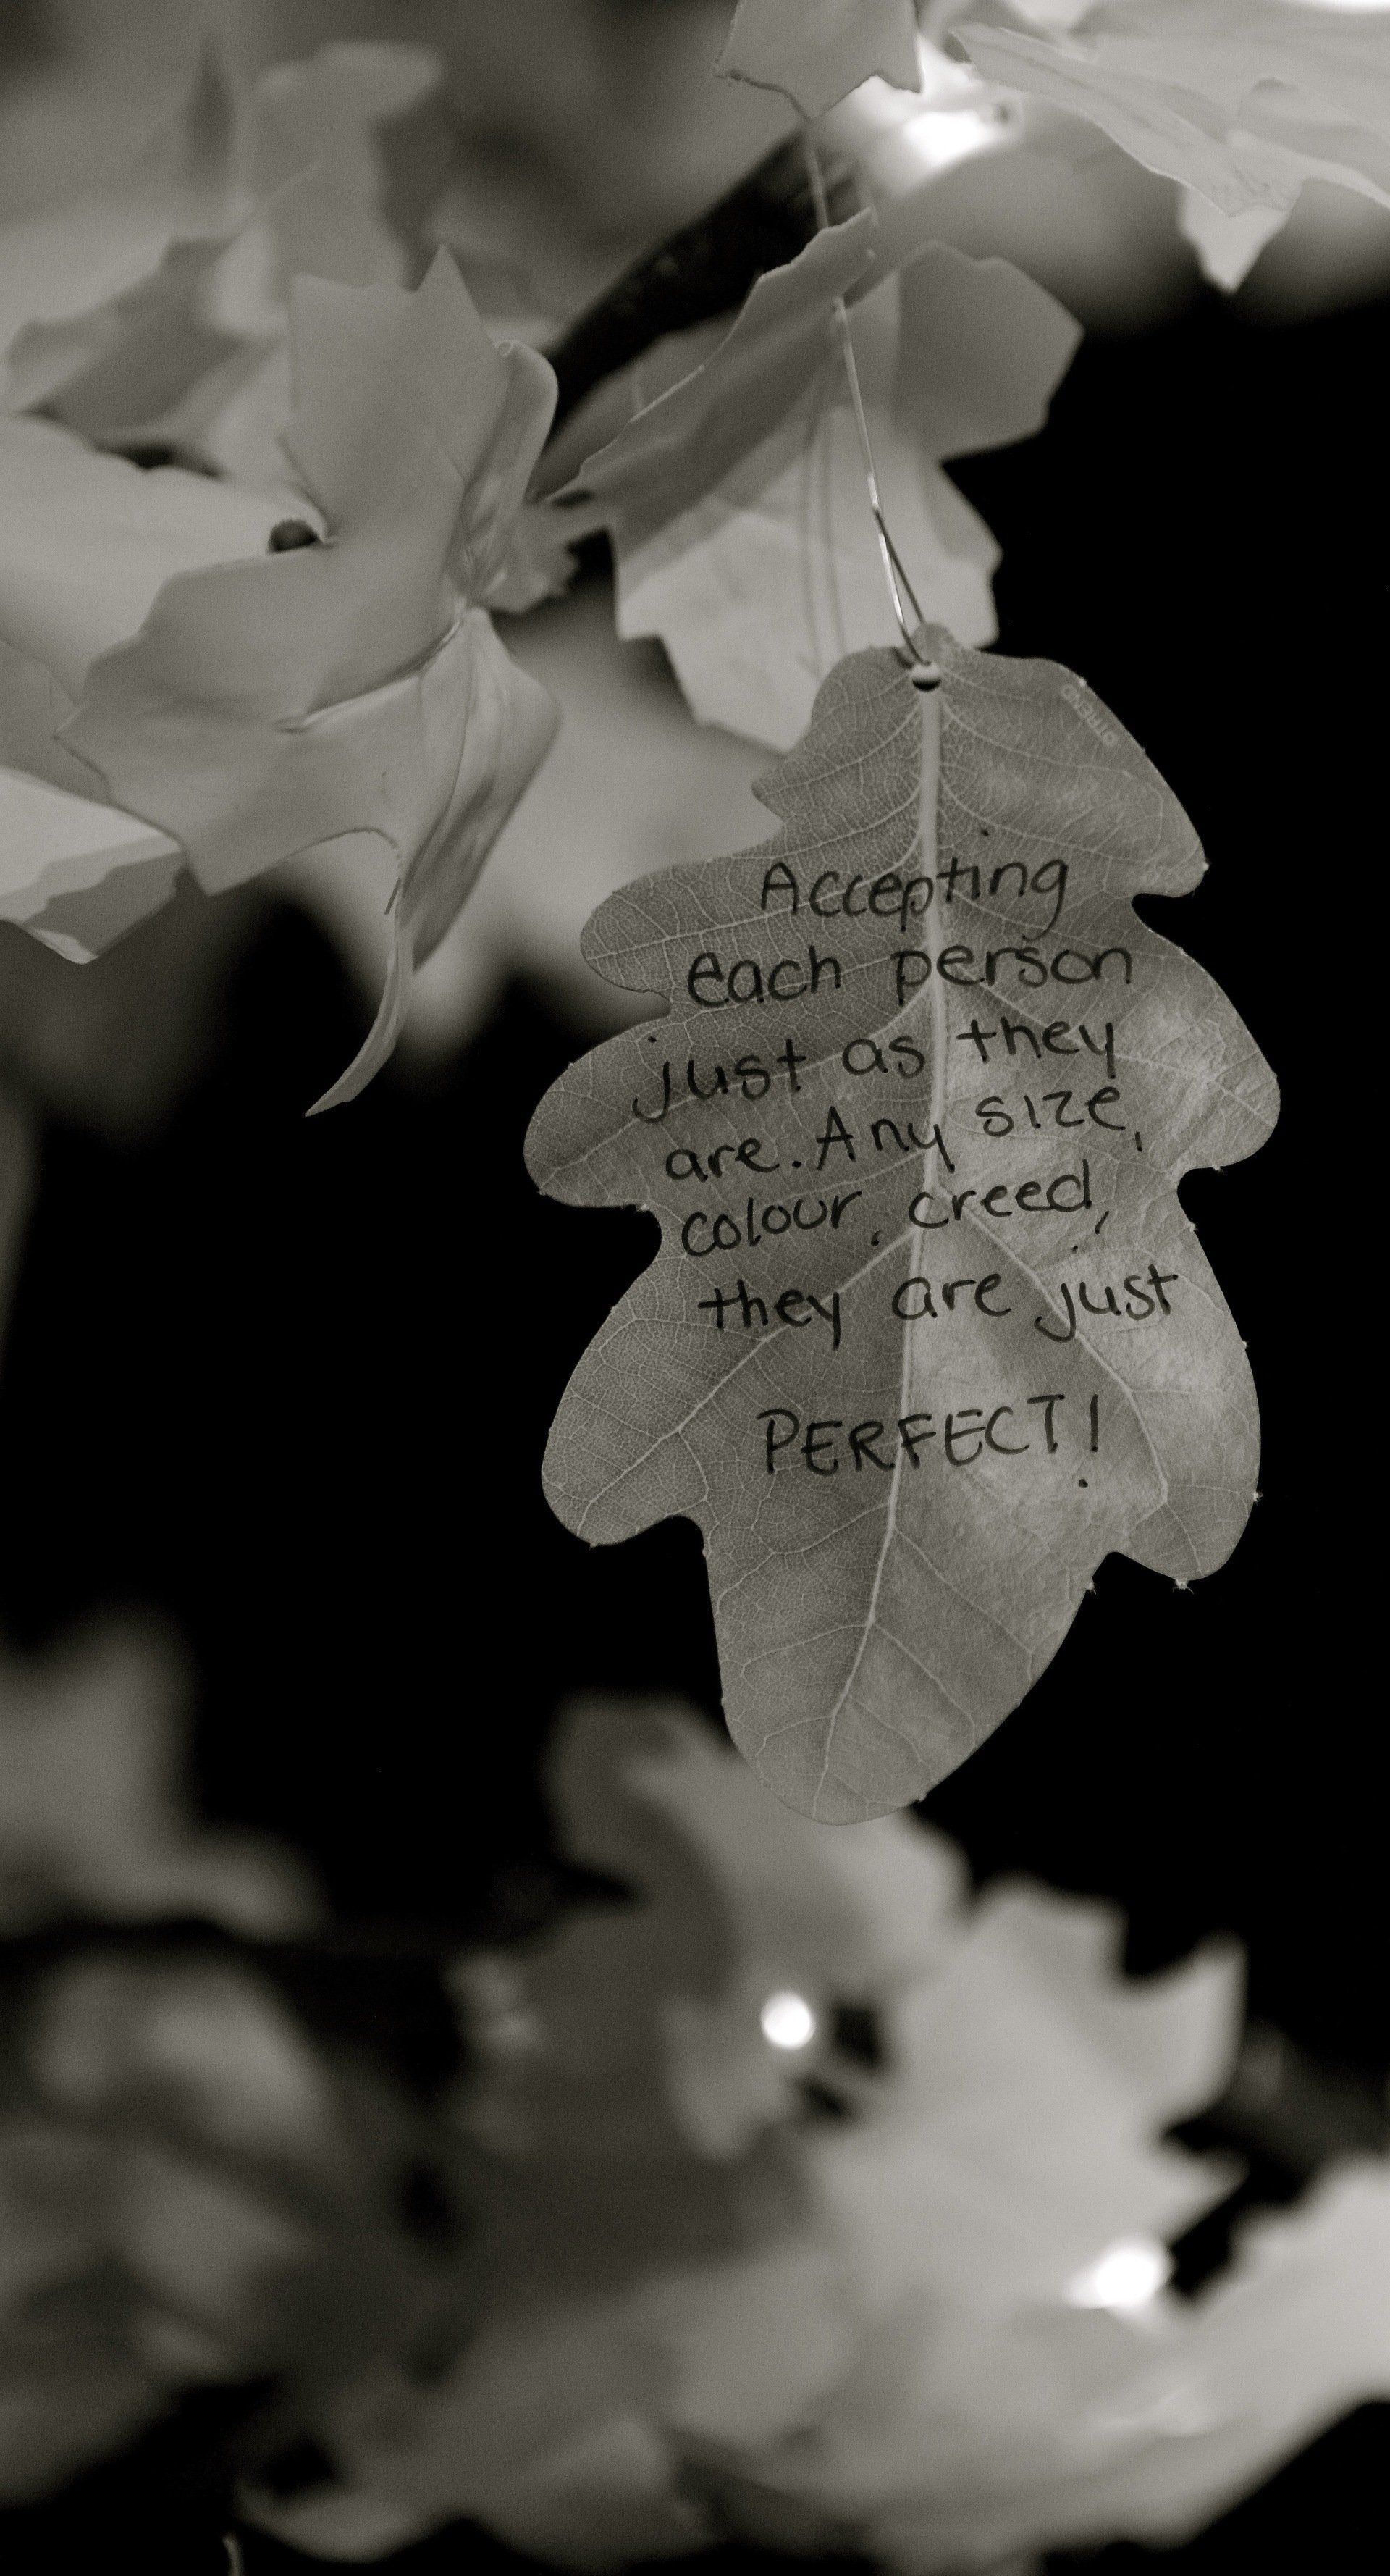 Accepting
each person
just as they
are. Any size,
colour, creed,
they are just
PERFECT!